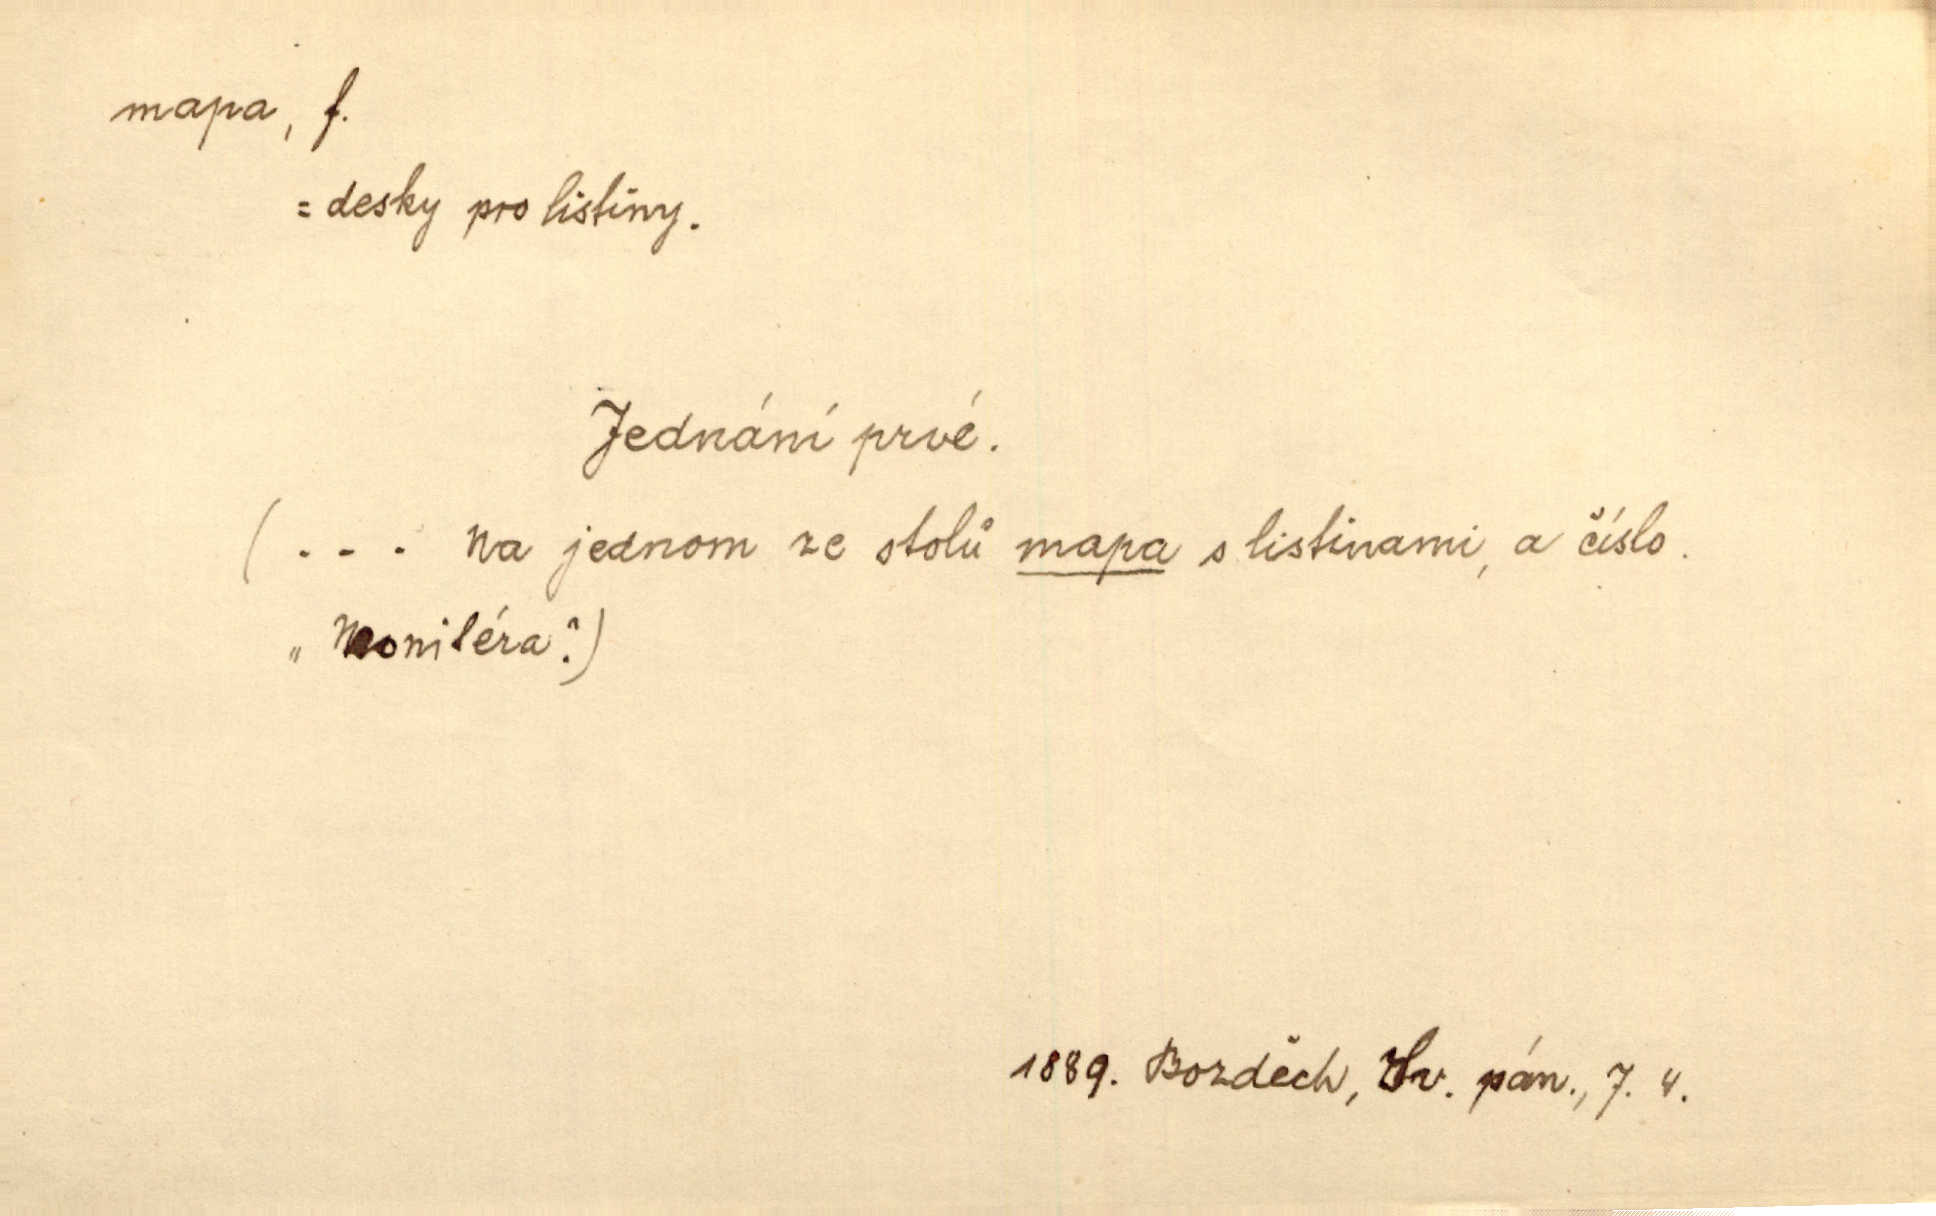 mapa, f.
= desky pro listiny.
Jednání prvé.
(... Na jednom ze stolů mapa s listinami, a číslo.
„Monitéra".)
1889. Bozděch, Sv. pán., 7. 4.